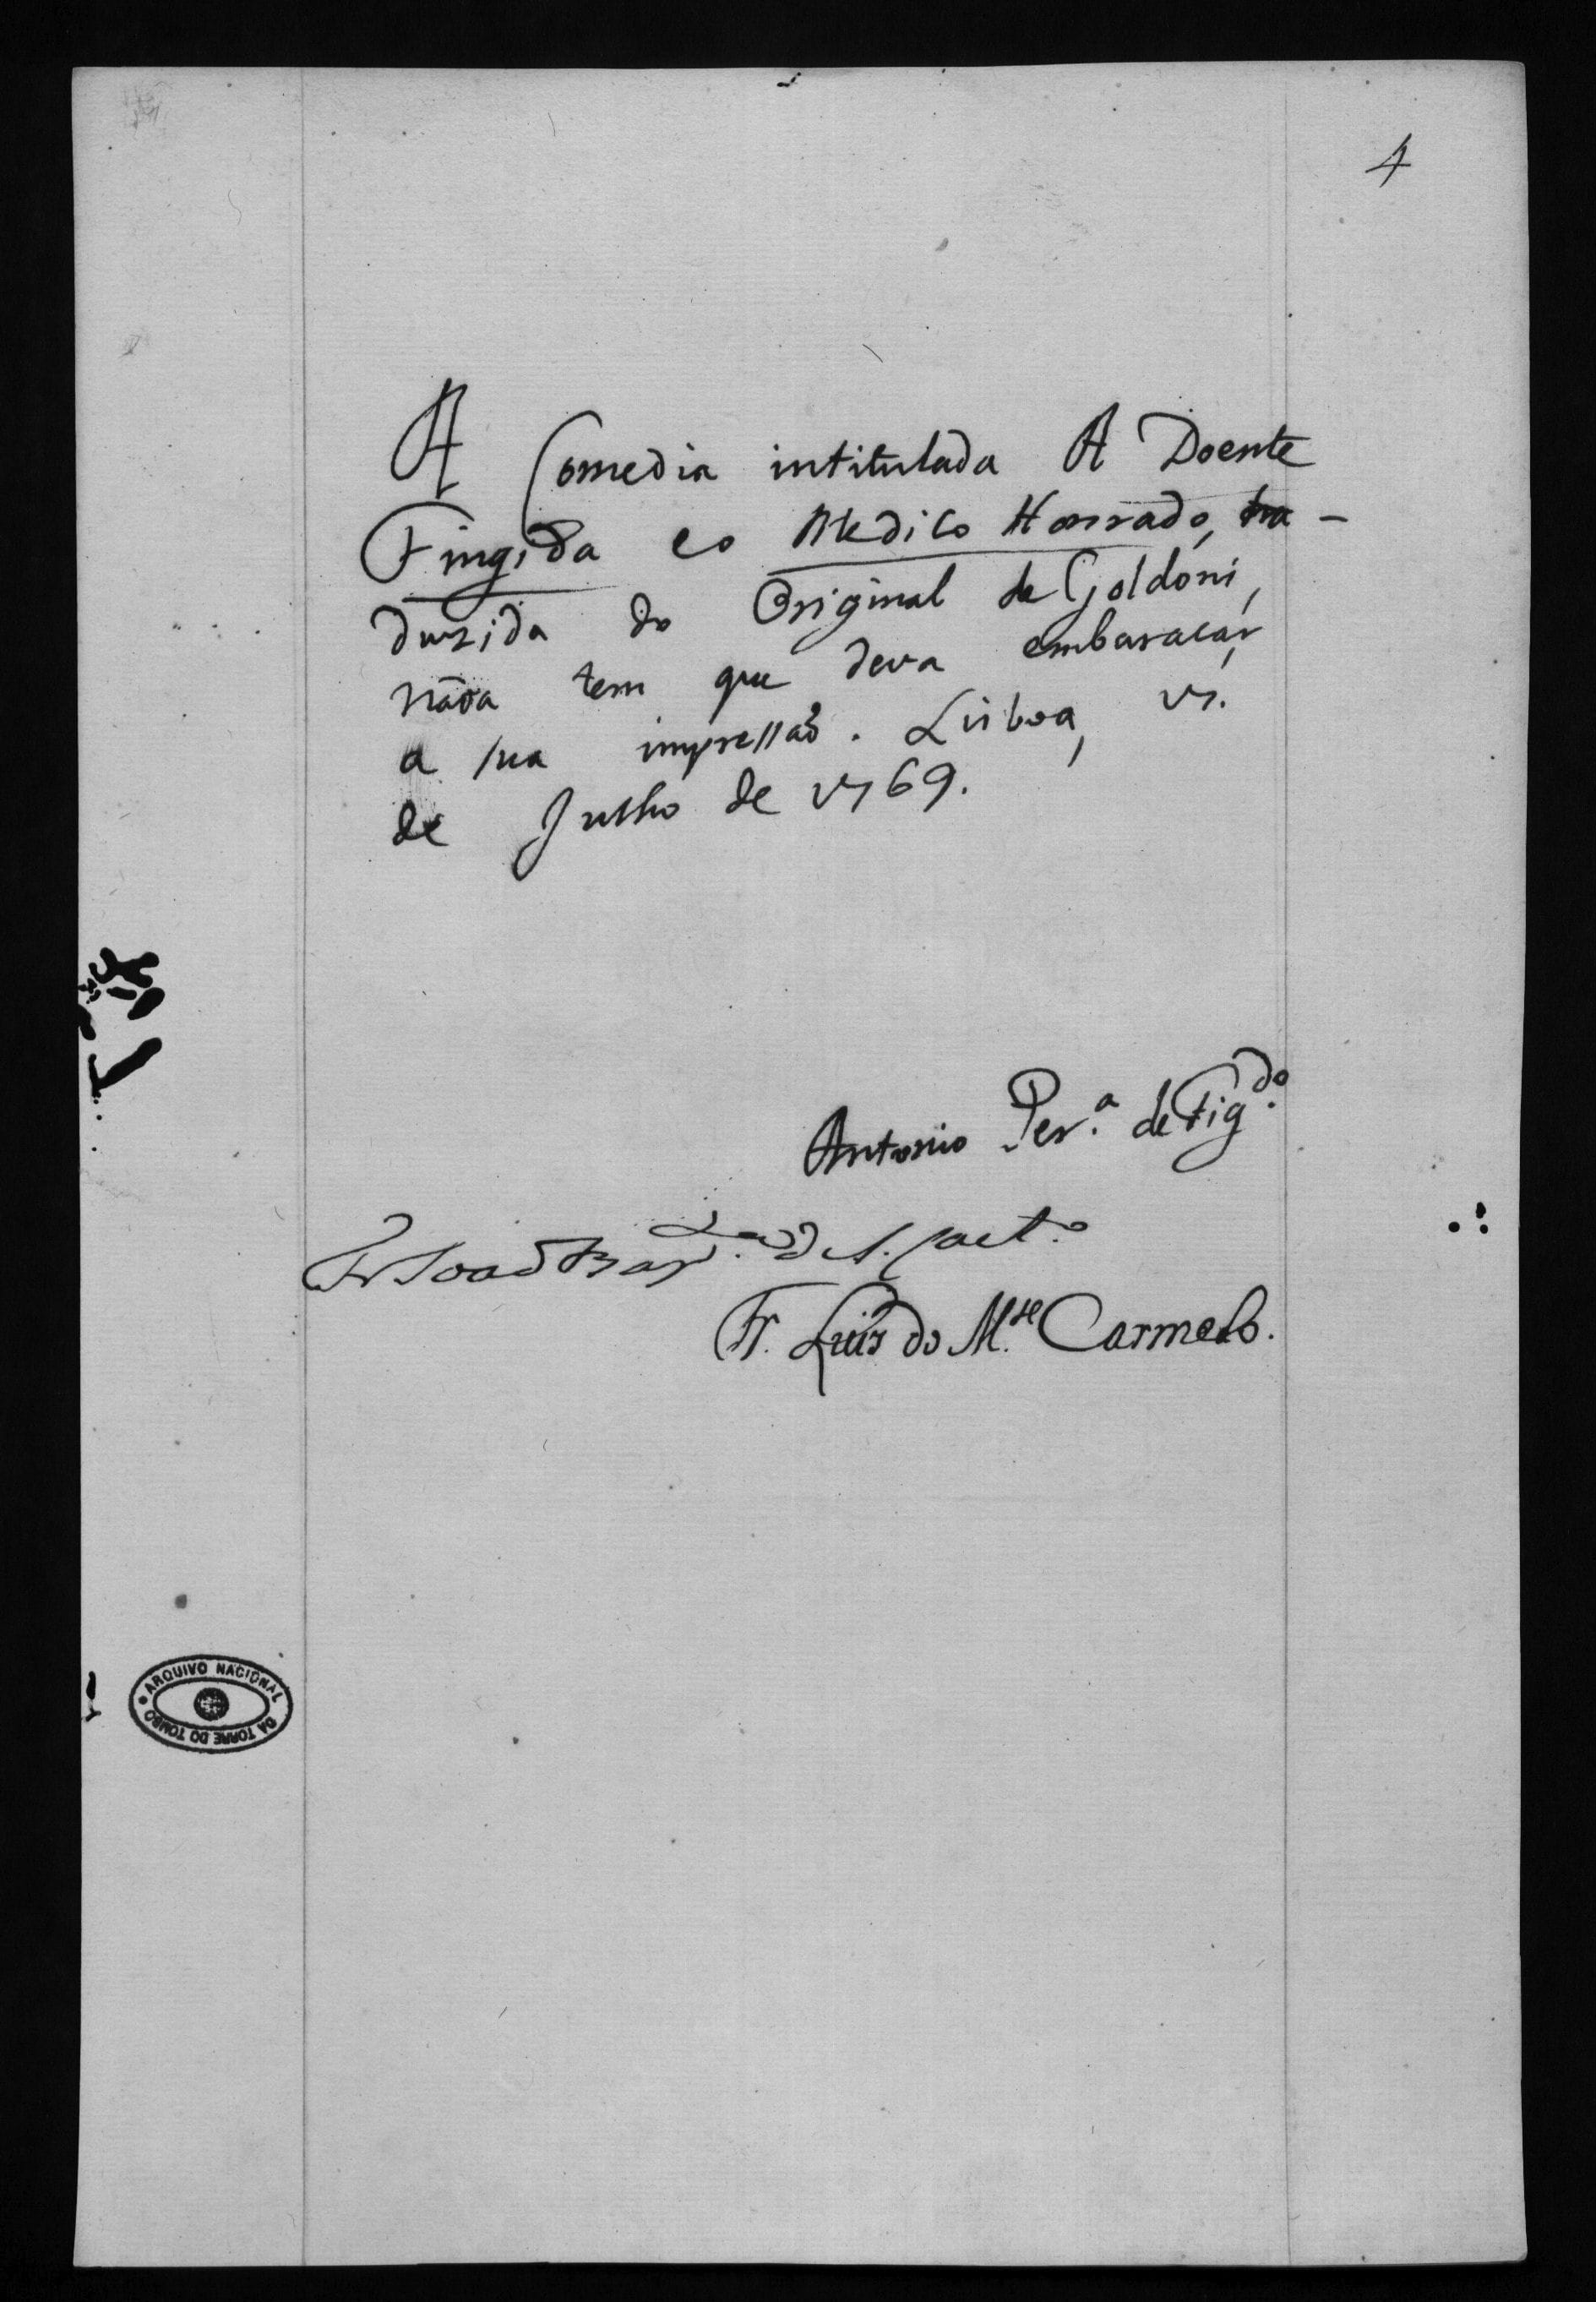 4
A Comedia intitulada A Doente
Fingida e o Medico Honrado, tra-
duzida do Original de Goldoni,
nãoa tem que deva embaraçar
a sua impressaõ. Lisboa, 17.
de Julho de 1769.
Antonio Per.ª de Fig.do
Fr Joaõ Bap.ta de S. Caet.o
Fr. Luis do M.te Carmelo.
ARQUIVO NACIONAL DA TORRE DO TOMBO